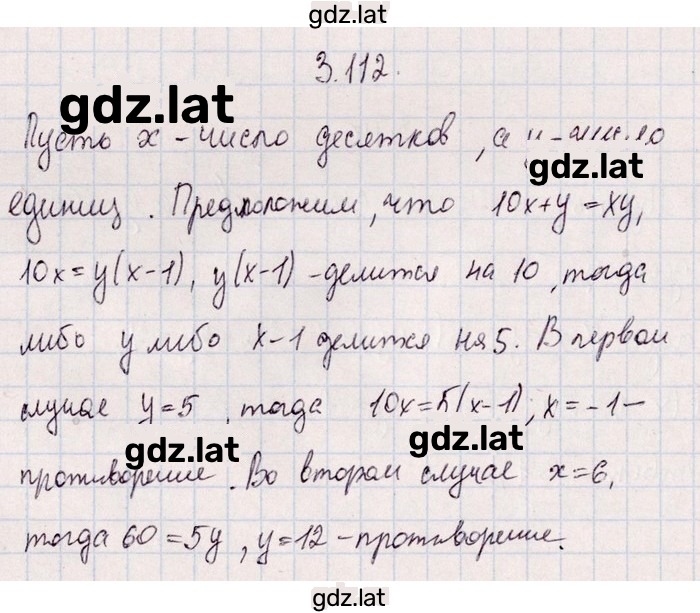 gdz.lat
3.112.
gdz.lat
Пусть x - число десятков, а
gdz.lat
единиц. Предположим, что 10x+y=xy,
10x=y(x-1), y(x-1) - делится на 10, тогда
либо y либо x-1 делится на 5. В первом
случае y=5, тогда 10x=5(x-1), x=-1 -
gdz.lat gdz.lat
противорение. Во втором случае x=6,
тогда 60=5y, y=12 - противорение.
gdz.lat